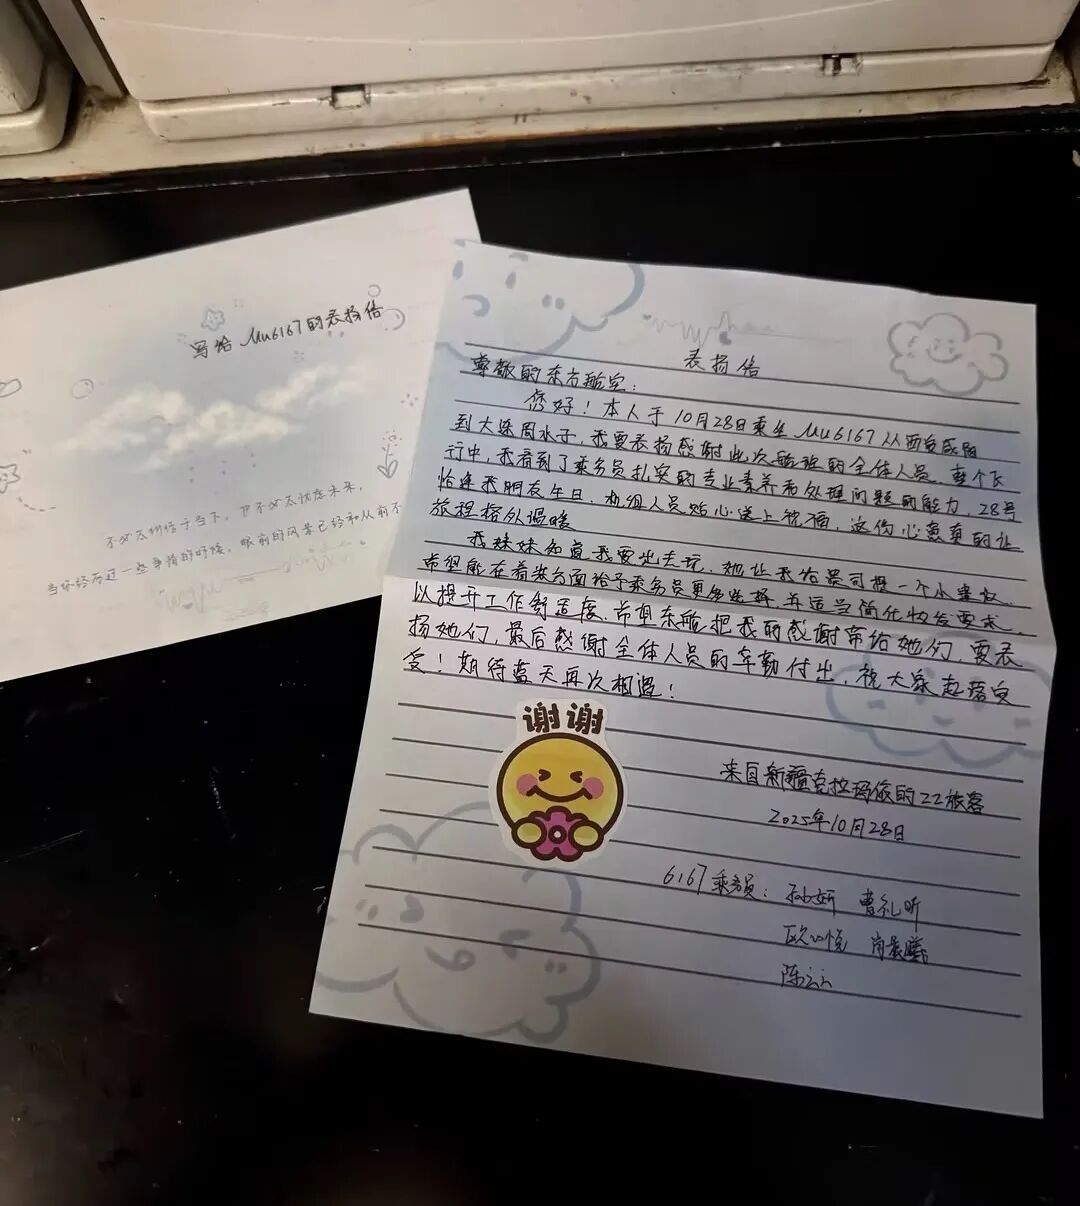 写给Mu6167的表扬信
不必太纠结于当下，也不必太忧虑未来，
当你经历过一些事情的时候，眼前的风景已经和从前不
表扬信
尊敬的东方航空：
您好！本人于10月28日乘坐Mu6167从西安咸阳
到大连周水子，我要表扬感谢此次航班的全体人员，整个飞
行中，我看到了乘务员扎实的专业素养和处理问题的能力，28号
恰逢我朋友生日，机组人员贴心送上祝福，这份心意真的让
旅程格外温暖
我妹妹知道我要出去玩，她让我给贵司提一个小建议，
希望能在着装方面给予乘务员更多选择，并适当简化妆发要求，
以提升工作舒适度，希望东航把我的感谢带给她们，要表
扬她们，最后感谢全体人员的辛勤付出，祝大家起落安
妥！期待蓝天再次相遇！
谢谢
来自新疆克拉玛依的ZZ旅客
2025年10月28日
6167乘务员：孙妍 曹礼昕
欧心悦 肖晨曦
陈云云